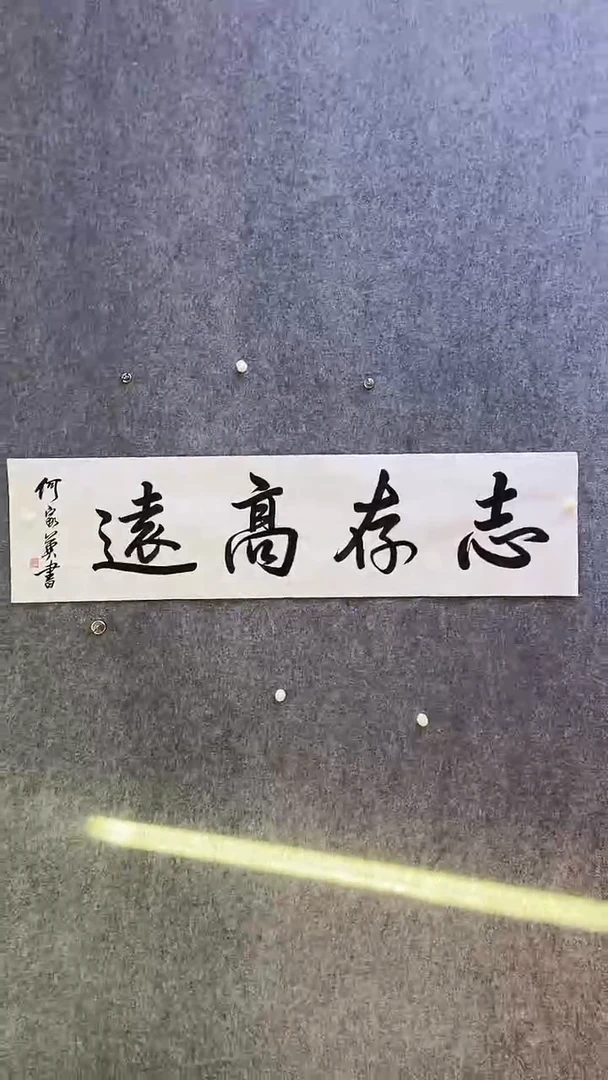 志存高遠
何家英書